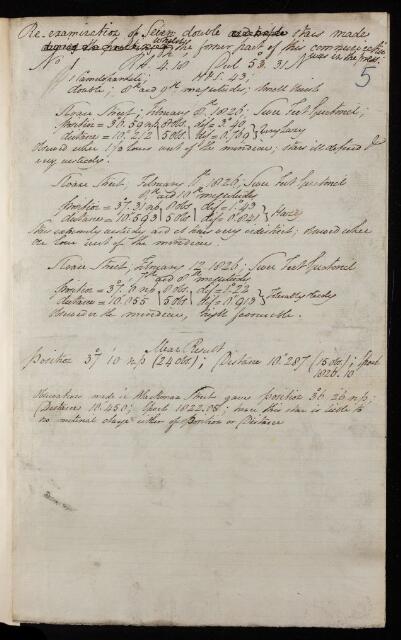 Re-examination of Seven double stars made
whilst the former part of this communication
was in the press.
5
No. 1 R.A. 4.10 Decl. 53.31 N
1 Camelopardali; H & S. 43;
double; 8th and 9th magnitudes; small
Sloane Street; February 8th, 1826; Seven Feet Equatorial;
Position = 36.59 np 8 obs. diff = 3.40
distance = 10".212 5 obs. diff = 0".769 } Very hazy
Observed when 1½ hours west of the meridian; stars ill defined &
very unsteady.
Sloane Street, February 11th, 1826; Seven Feet Equatorial
9th and 10th magnitudes
Position = 37.31 np 8 obs. diff = 1.43
distance = 10".593 5 obs. diff = 0".841 } Hazy
Stars extremely unsteady and at times very indistinct; observed when
an hour west of the meridian.
Sloane Street, February 12, 1826; Seven Feet Equatorial
7th and 8th magnitudes
Position = 37.0 np 8 obs. diff = 1.22
distance = 10".055 5 obs. diff = 0".913 } Tolerably steady
Observed in the meridian, night favourable.
Mean Result
Position 37° 10' np (24 obs.); Distance 10".287 (15 obs.); Epoch
1826.10
Observations made in Blackman Street gave position 36° 26' np;
Distance 10".450; Epoch 1822.05; hence this star is liable to
no material change either of Position or Distance